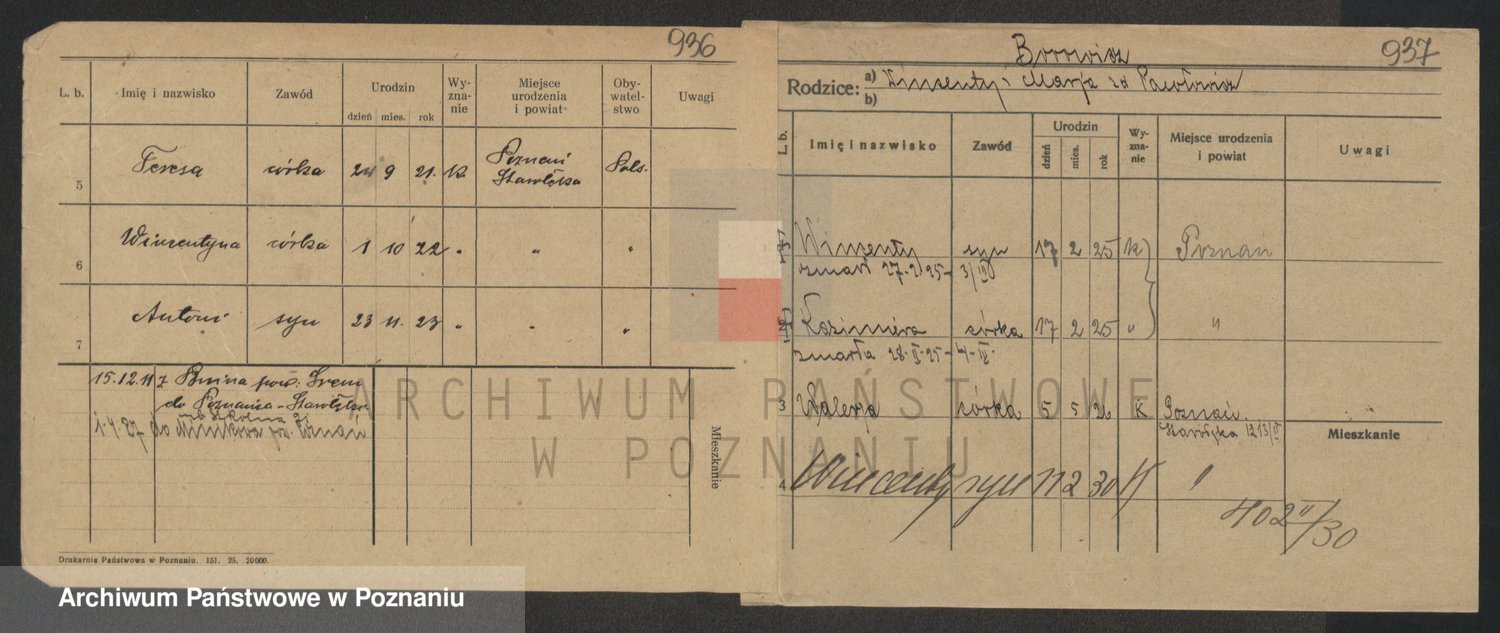 936
L. b. Imię i nazwisko Zawód Urodzin dzień mies. rok Wy-zna-nie Miejsce urodzenia i powiat Oby-watel-stwo Uwagi
5 Teresa córka 24 9 21. K Poznań Starołęka Pols.
6 Wincentyna córka 1 10 22 " " "
7 Antoni syn 23 11. 23 " " "
15.12.11 z Bnina pow. Śrem
do Poznania - Starołęka
ul. Szkolna
1.4.27 do Minikowa pw. Poznań
Mieszkanie
Drukarnia Państwowa w Poznaniu. 151. 25. 20 000.
937
Borowicz
Rodzice: a) Wincenty i Marja zd Pawłowicz
b)
L. b. Imię i nazwisko Zawód Urodzin dzień mies. rok Wy-zna-nie Miejsce urodzenia i powiat Uwagi
Wincenty syn 17 2 25 K Poznań
zmarł 27.2.25 - 3/III
Kazimiera córka 17 2 25 " "
zmarła 28.II.25 - 4.III.
3 Walerja córka 5 5 26 K Poznań.
Starołęka 1213/V
Mieszkanie
4 Wincenty syn 11 2 30 K "
402 II/30
ARCHIWUM PAŃSTWOWE
W POZNANIU
Archiwum Państwowe w Poznaniu